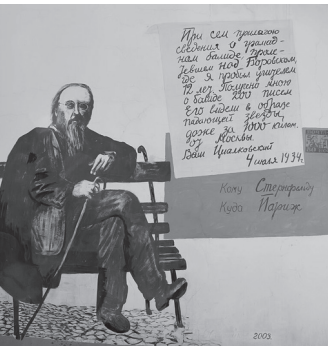 При сем прилагаю
сведения о громад-
ном болиде, проле-
тевшем над Боровском,
где я пробыл учителем
12 лет. Получено мною
о болиде 200 писем
Его видели в образе
падающей звезды,
даже за 1000 килом.
от Москвы
Ваш Циолковский
4 июля 1934г.
Кому Стернфельду
Куда Париж
2003